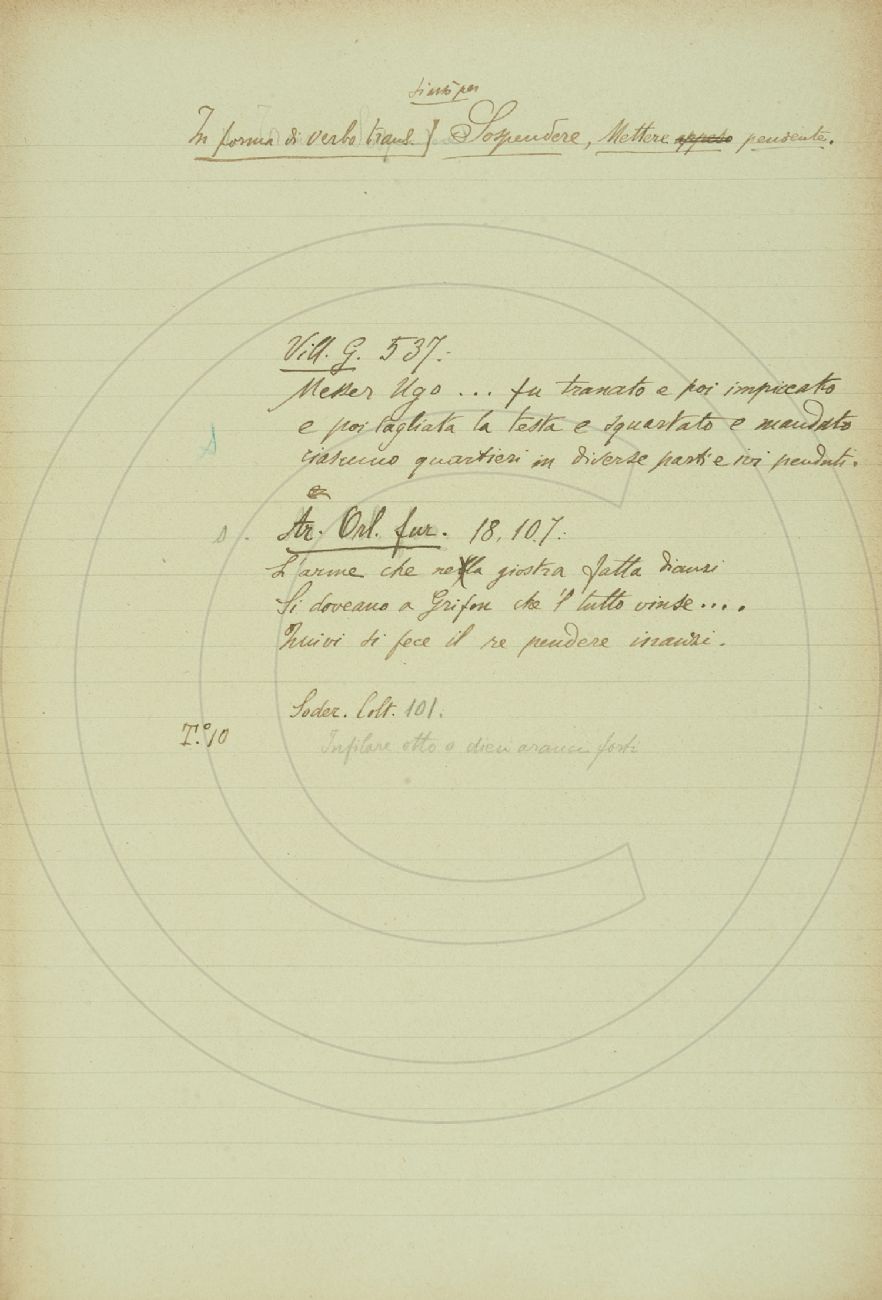 si usò per
In forma di verbo trans.] Sospendere, Mettere appeso pendente.
Vill. G. 537:
Messer Ugo ... fu tranato e poi impiccato
e poi tagliata la testa e squartato e mandato
ciascuno quartieri in diverse parti e ivi penduti.
Ar. Orl. fur. 18, 107:
L'arme che nella giostra fatta dianzi
Si doveano a Grifon che 'l tutto vinse....
Quivi si fece il re pendere inanzi.
Soder. Colt. 101.
T.º 10
Infilare otto o dieci aranci forti